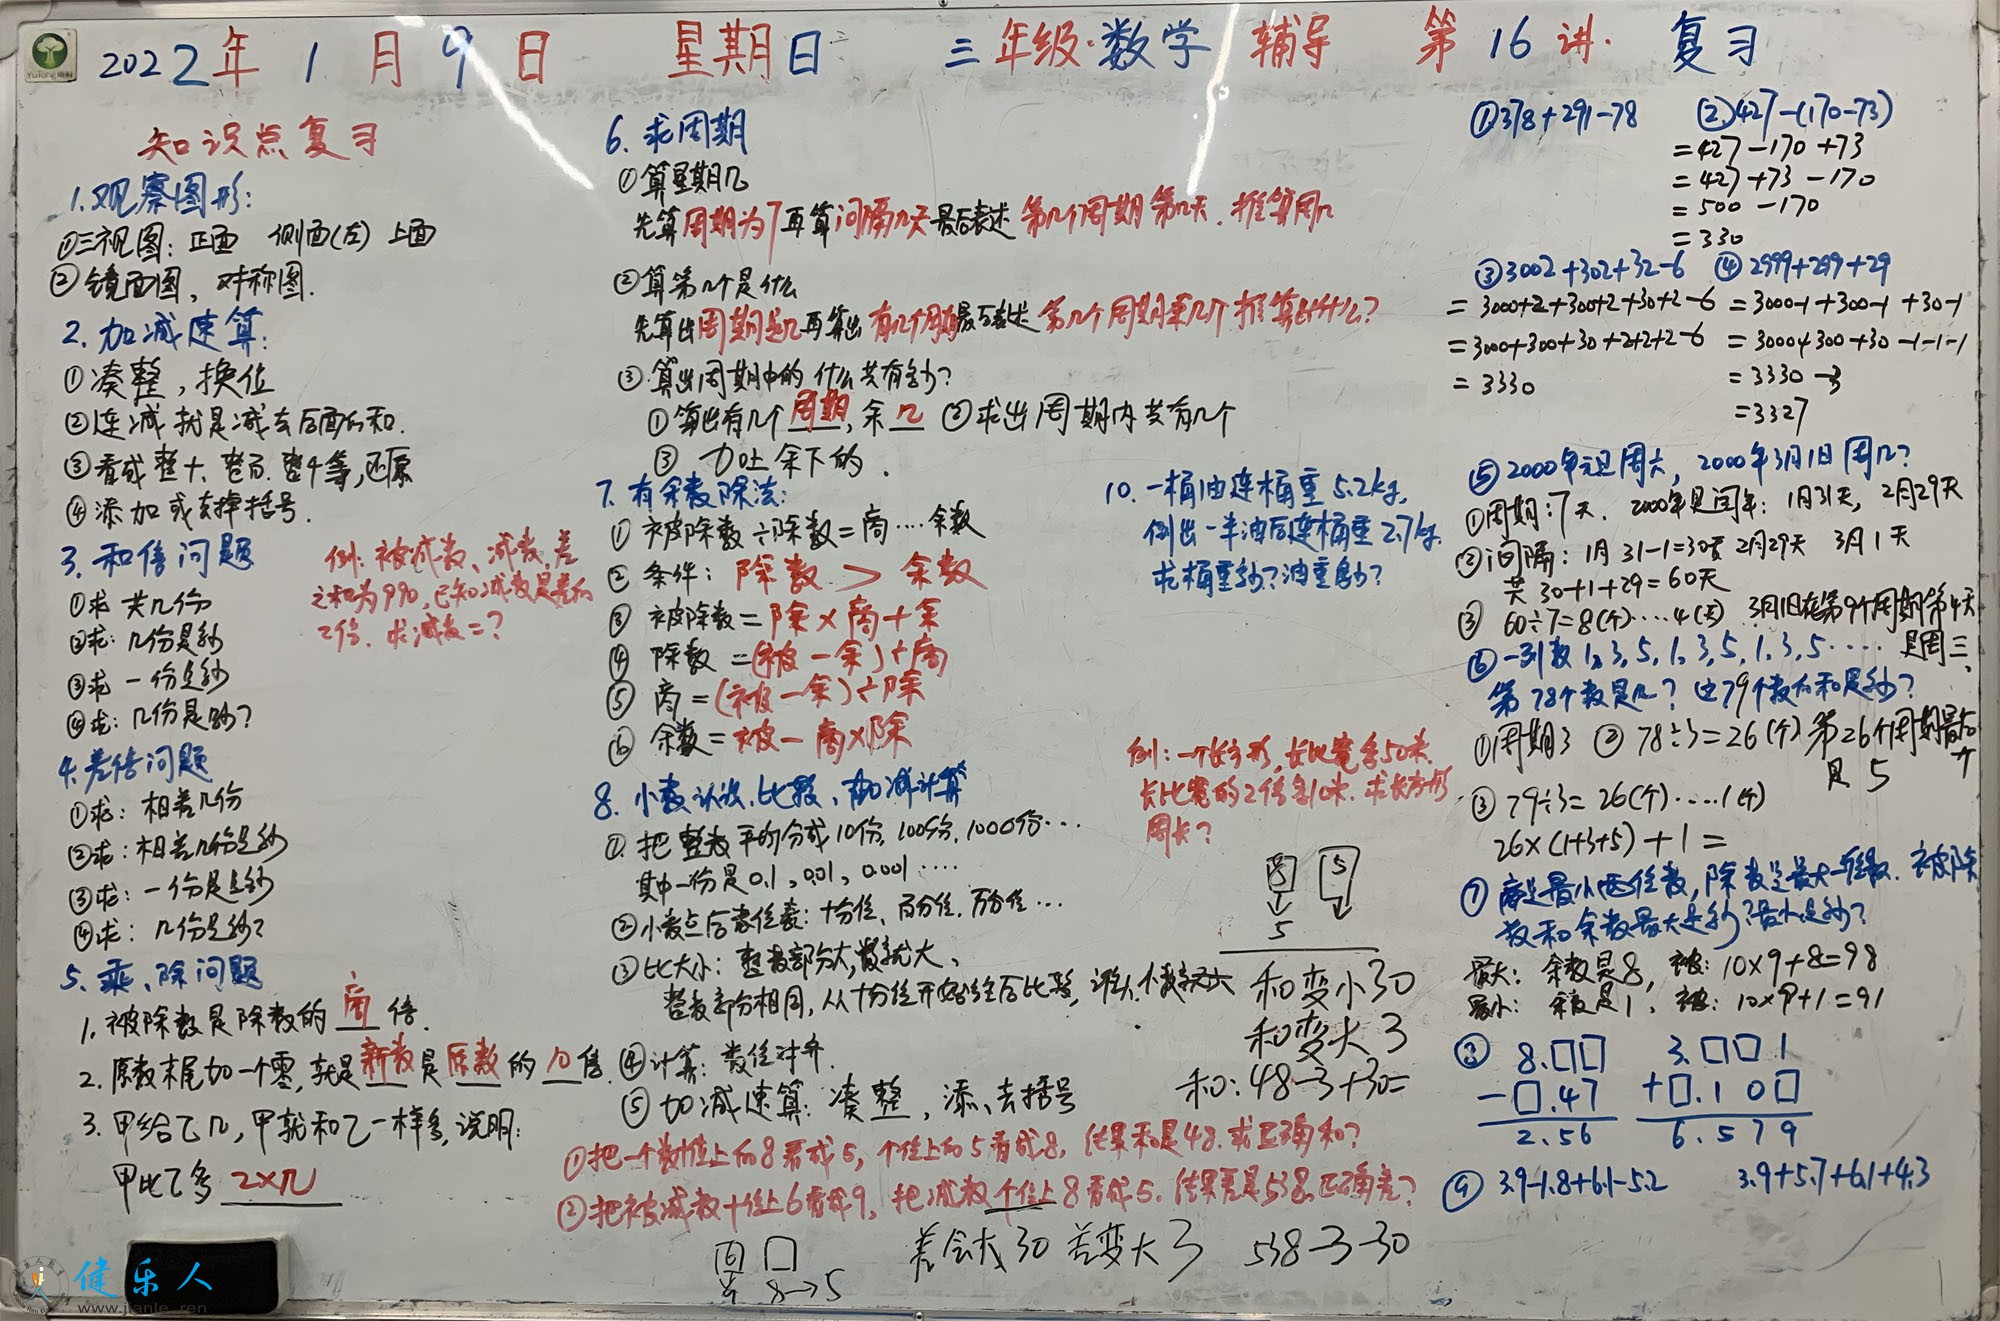 2022年1月9日 星期日 三年级·数学 辅导 第16讲. 复习
知识点复习
1.观察图形:
①三视图: 正面 侧面(左) 上面
②镜面图、对称图.
2.加减速算:
①凑整,换位
②连减就是减去后面的和.
③看成整十、整百、整千等,还原
④添加或去掉括号.
3.和倍问题
①求共几份
②求:几份是多少
③求一份是多少
④求:几份是多少?
例:被减数、减数、差
之和为990,已知减数是差的
2倍.求减数=?
4.差倍问题
①求:相差几份
②求:相差几份是多少
③求:一份是多少
④求:几份是多少?
5.乘、除问题
1.被除数是除数的 商 倍.
2.原数末尾加一个零,就是新数是原数的 几 倍.
3.甲给乙几,甲就和乙一样多,说明:
甲比乙多 2×几
6.求周期
①算星期几
先算周期为7再算间隔几天最后表述第几个周期第几天.推算周几
②算第几个是什么
先算出周期是几再算出有几个周期最后表述第几个周期第几个推算出什么?
③算出周期中的什么共有多少?
①算出有几个周期,余几 ②求出周期内共有几个
③加上余下的.
7.有余数除法:
①被除数÷除数=商····余数
②条件:除数 > 余数
③被除数=除×商+余
④除数=(被-余)÷商
⑤商=(被-余)÷除
⑥余数=被-商×除
8.小数认识、比较、加减计算
①.把整数平均分成10份,100份,1000份···
其中一份是0.1,0.01,0.001····
②小数点后数位数:十分位、百分位、万分位···
③比大小:整数部分大,数就大、
整数部分相同,从十分位开始往后比较,谁大,小数就大
④计算:数位对齐.
⑤加减速算:凑整,添、去括号
①把一个数十位上的8看成5,个位上的5看成8,结果和是48.求正确和?
②把被减数十位上6看成9,把减数个位上8看成5.结果差是538.正确差?
6 □
9 8→5
差会大30 差变大3 538-3-30
10.一桶油连桶重5.2kg,
倒出一半油后连桶重2.7kg.
求桶重多少?油重多少?
例:一个长方形,长比宽多50米.
长比宽的2倍多10米.求长方形
周长?
8 5
5
和变小30
和变大3
和:48-3+30=
①378+291-78 ②427-(170-73)
=427-170+73
=427+73-170
=500-170
=330
③3002+302+32-6 ④2999+299+29
=3000+2+300+2+30+2-6 =3000-1+300-1+30-1
=3000+300+30+2+2+2-6 =3000+300+30-1-1-1
=3330 =3330-3
=3327
⑤2000年元旦周六,2000年3月1日周几?
①周期:7天. 2000年是闰年: 1月31天, 2月29天
②间隔: 1月31-1=30天 2月29天 3月1天
共30+1+29=60天
③ 60÷7=8(个)····4(天) 3月1日在第9个周期第4天
是周三、
⑥一列数1,3,5,1,3,5,1,3,5····
第78个数是几?这79个数的和是多少?
①周期3 ②78÷3=26(个) 第26个周期最后一个
是5
③79÷3=26(个)·····1(个)
26×(1+3+5)+1=
⑦商是最小两位数,除数是最大一位数.被除
数和余数最大是多少?最小是多少?
最大: 余数是8, 被: 10×9+8=98
最小: 余数是1, 被: 10×9+1=91
⑧ 8.□□ 3.□□1
-□.47 +□.10□
2.56 6.579
⑨ 3.9-1.8+6.1-5.2 3.9+5.7+6.1+4.3
健乐人
www.jianle.ren